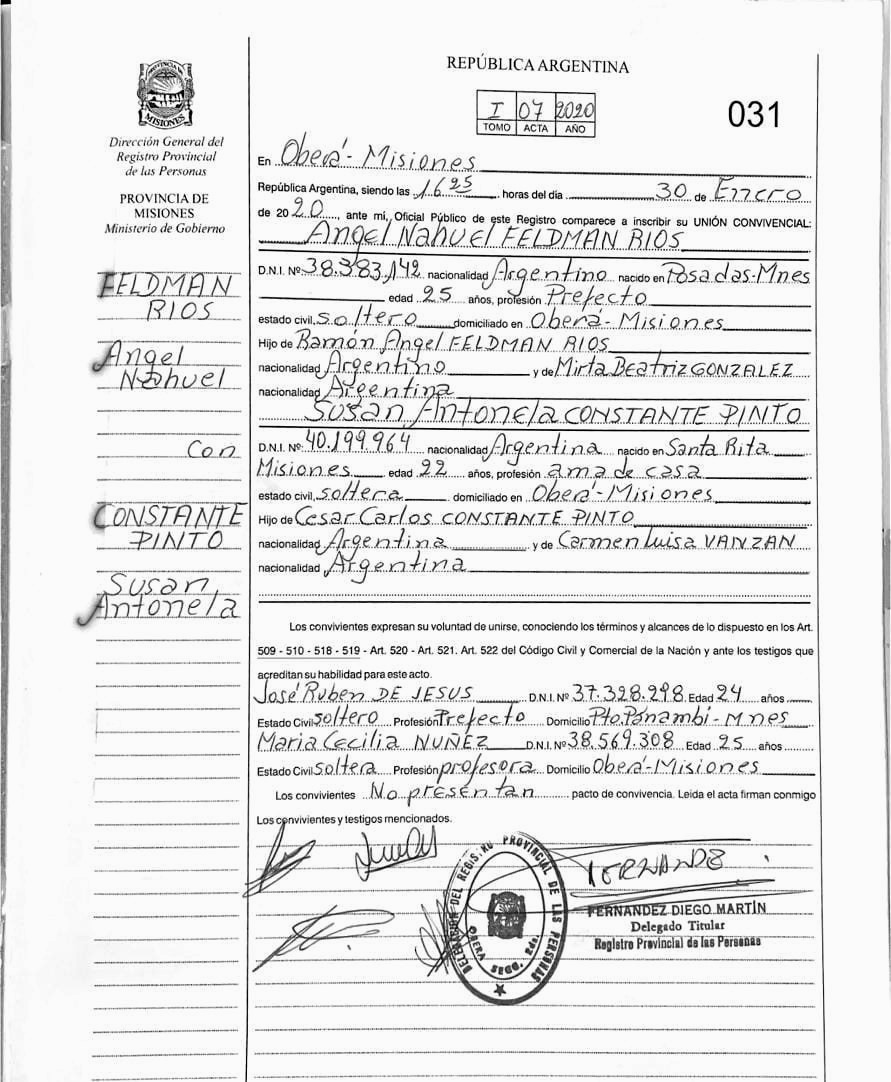 REPÚBLICA ARGENTINA
PROVINCIA DE
MISIONES
I 07 2020
TOMO ACTA AÑO
031
Dirección General del
Registro Provincial
de las Personas
PROVINCIA DE
MISIONES
Ministerio de Gobierno
FELDMAN
RIOS
Angel
Nahuel
Con
CONSTANTE
PINTO
Susan
Antonela
En Oberá - Misiones
República Argentina, siendo las 16 25 horas del día 30 de Enero
de 2020, ante mí, Oficial Público de este Registro comparece a inscribir su UNIÓN CONVIVENCIAL:
Angel Nahuel FELDMAN RIOS
D.N.I. Nº 38.383.142 nacionalidad Argentino nacido en Posadas-Mnes
edad 25 años, profesión Prefecto
estado civil, soltero domiciliado en Oberá - Misiones
Hijo de Ramón Angel FELDMAN RIOS
nacionalidad Argentino y de Mirta Beatriz GONZALEZ
nacionalidad Argentina
Susan Antonela CONSTANTE PINTO
D.N.I. Nº 40.199.964 nacionalidad Argentina nacido en Santa Rita
Misiones edad 22 años, profesión ama de casa
estado civil, soltera domiciliado en Oberá - Misiones
Hijo de Cesar Carlos CONSTANTE PINTO
nacionalidad Argentina y de Carmen Luisa VANZAN
nacionalidad Argentina
Los convivientes expresan su voluntad de unirse, conociendo los términos y alcances de lo dispuesto en los Art.
509 - 510 - 518 - 519 - Art. 520 - Art. 521. Art. 522 del Código Civil y Comercial de la Nación y ante los testigos que
acreditan su habilidad para este acto.
José Ruben DE JESUS D.N.I. Nº 37.328.298 Edad 24 años
Estado Civil soltero Profesión Prefecto Domicilio Pto. Panambi - Mnes
Maria Cecilia NUÑEZ D.N.I. Nº 38.569.308 Edad 25 años
Estado Civil soltera Profesión profesora Domicilio Oberá - Misiones
Los convivientes No presentan pacto de convivencia. Leida el acta firman conmigo
Los convivientes y testigos mencionados.
DELEGACIÓN DEL REGIS. RO PROVINCIAL DE LAS PERSONAS
OBERA SECC.
FERNANDEZ DIEGO MARTÍN
Delegado Titular
Registro Provincial de las Personas